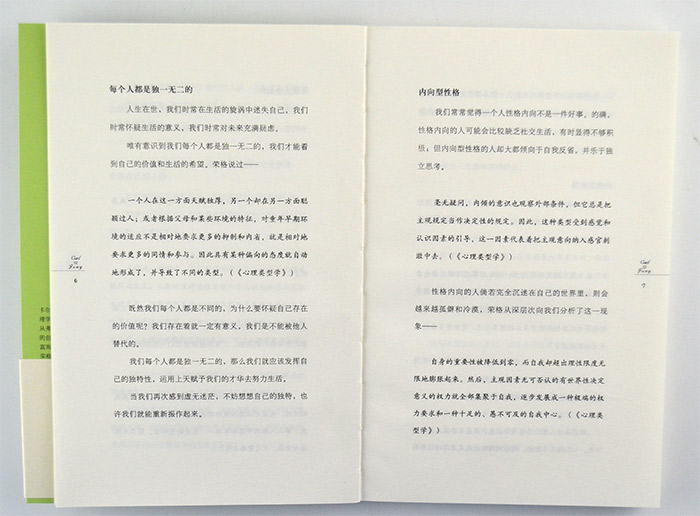 每个人都是独一无二的
人生在世,我们时常在生活的旋涡中迷失自己,我们
时常怀疑生活的意义,我们时常对未来充满疑虑。
唯有意识到我们每个人都是独一无二的,我们才能看
到自己的价值和生活的希望。荣格说过——
一个人在这一方面天赋独厚,另一个却在另一方面聪
颖过人;或者根据父母和某些环境的特征,对童年早期环
境的适应不是相对地要求更多的抑制和内省,就是相对地
要求更多的同情和参与。因此具有某种偏向的态度就自动
地形成了,并导致了不同的类型。(《心理类型学》)
既然我们每个人都是不同的,为什么要怀疑自己存在
的价值呢?我们存在着就一定有意义,我们是不能被他人
替代的。
我们每个人都是独一无二的,那么我们就应该发挥自
己的独特性,运用上天赋予我们的才华去努力生活。
当我们再次感到虚无迷茫,不妨想想自己的独特,也
许我们就能重新振作起来。
Carl
G
Jung
6
内向型性格
我们常常觉得一个人性格内向不是一件好事。的确,
性格内向的人可能会比较缺乏社交生活,有时显得不够积
极;但内向型性格的人却大都倾向于自我反省,并乐于独
立思考。
毫无疑问,内倾的意识也观察外部条件,但它总是把
主观规定当作决定性的规定。因此,这种类型受到感觉和
认识因素的引导,这一因素代表着把主观意向纳入感官刺
激中去。(《心理类型学》)
性格内向的人倘若完全沉迷在自己的世界里,则会
越来越孤僻和冷漠,荣格从深层次向我们分析了这一现
象——
自身的重要性被降低到零,而自我却超出理性限度无
限地膨胀起来。然后,主观因素无可否认的有世界性决定
意义的权力就全部集聚于自我,逐步发展成一种极端的权
力要求和一种十足的、愚不可及的自我中心。(《心理类
型学》)
Carl
G
Jung
7